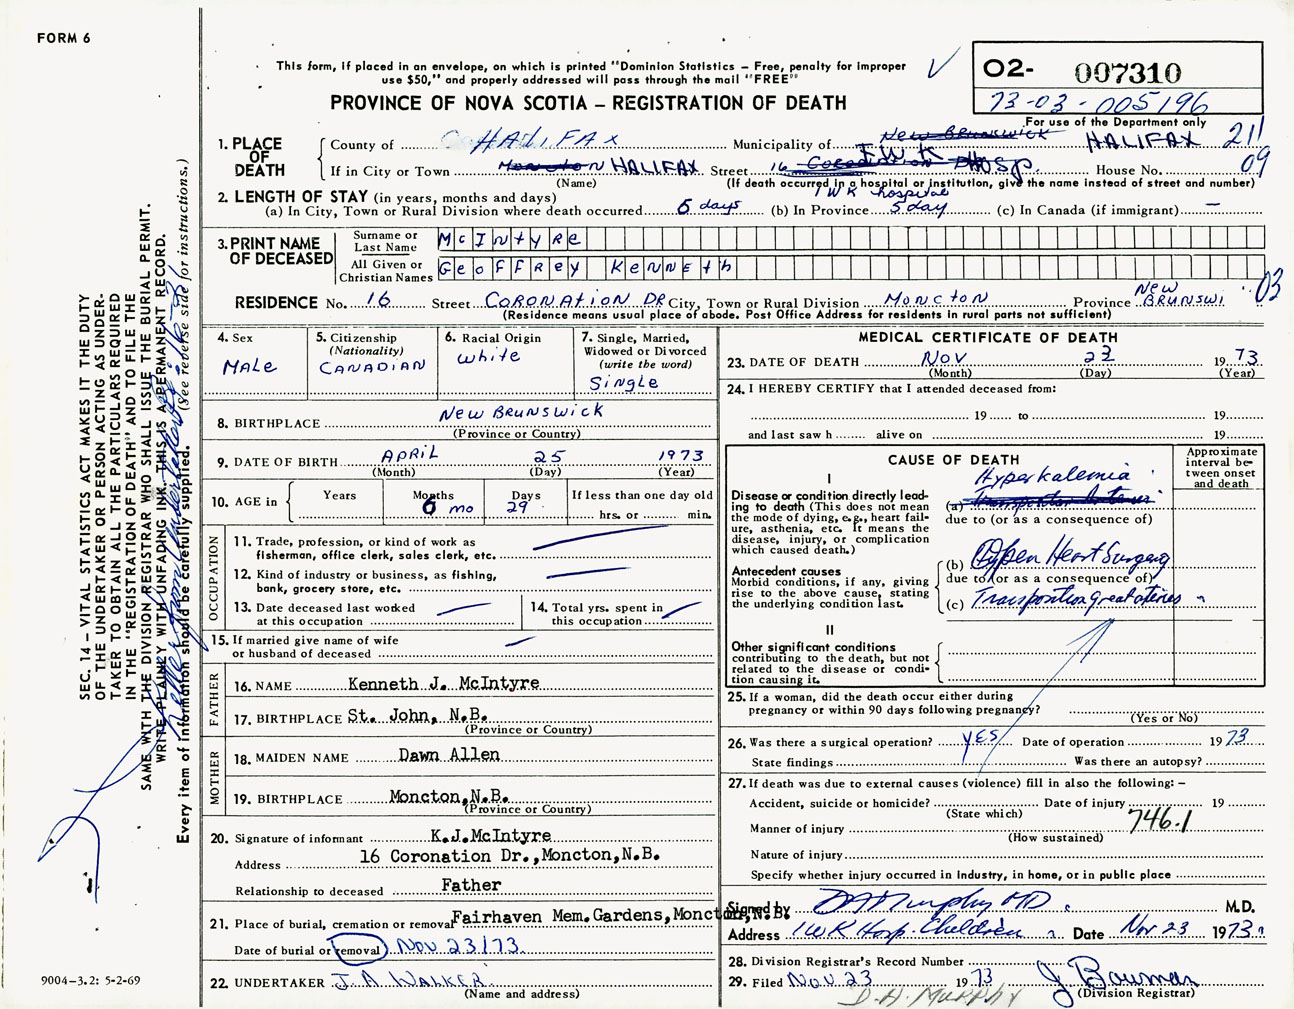 FORM 6
This form, if placed in an envelope, on which is printed "Dominion Statistics – Free, penalty for improper
use $50," and properly addressed will pass through the mail "FREE"
PROVINCE OF NOVA SCOTIA – REGISTRATION OF DEATH
O2- 007310
73-03-005196
For use of the Department only
SEC.14 – VITAL STATISTICS ACT MAKES IT THE DUTY
OF THE UNDERTAKER OR PERSON ACTING AS UNDER-
TAKER TO OBTAIN ALL THE PARTICULARS REQUIRED
IN THE "REGISTRATION OF DEATH" AND TO FILE THE
SAME WITH THE DIVISION REGISTRAR WHO SHALL ISSUE THE BURIAL PERMIT.
WRITE PLAINLY WITH UNFADING INK. THIS IS A PERMANENT RECORD.
Every item of information should be carefully supplied. (See reverse side for instructions.)
1. PLACE OF DEATH
County of HALIFAX Municipality of New Brunswick HALIFAX 211
If in City or Town Moncton HALIFAX Street 16 Coronation I W K Hosp. House No. 09
(Name) (If death occurred in a hospital or institution, give the name instead of street and number)
2. LENGTH OF STAY (in years, months and days) IWK hospital
(a) In City, Town or Rural Division where death occurred 5 days (b) In Province 5 day (c) In Canada (if immigrant) —
3. PRINT NAME OF DECEASED
Surname or Last Name McIntyre
All Given or Christian Names Geoffrey Kenneth
RESIDENCE No. 16 Street CORONATION DR City, Town or Rural Division MONCTON Province New BRUNSWI 03
(Residence means usual place of abode. Post Office Address for residents in rural parts not sufficient)
4. Sex
MALe
5. Citizenship
(Nationality)
CANADIAN
6. Racial Origin
white
7. Single, Married,
Widowed or Divorced
(write the word)
Single
8. BIRTHPLACE New BRUNSWICK
(Province or Country)
9. DATE OF BIRTH APRIL 25 1973
(Month) (Day) (Year)
10. AGE in Years Months 6 mo Days 29 If less than one day old
hrs. or min.
OCCUPATION
11. Trade, profession, or kind of work as
fisherman, office clerk, sales clerk, etc.
12. Kind of industry or business, as fishing,
bank, grocery store, etc.
13. Date deceased last worked
at this occupation
14. Total yrs. spent in
this occupation
15. If married give name of wife
or husband of deceased
FATHER
16. NAME Kenneth J. McIntyre
17. BIRTHPLACE St. John, N.B.
(Province or Country)
MOTHER
18. MAIDEN NAME Dawn Allen
19. BIRTHPLACE Moncton,N.B.
(Province or Country)
20. Signature of informant K.J.McIntyre
Address 16 Coronation Dr.,Moncton,N.B.
Relationship to deceased Father
21. Place of burial, cremation or removal Fairhaven Mem.Gardens,Moncton,N.B.
Date of burial or removal Nov 23/73
22. UNDERTAKER J. A WALKER
(Name and address)
MEDICAL CERTIFICATE OF DEATH
23. DATE OF DEATH NOV 23 1973
(Month) (Day) (Year)
24. I HEREBY CERTIFY that I attended deceased from:
19 to 19
and last saw h alive on 19
CAUSE OF DEATH
Approximate
interval be-
tween onset
and death
I
Disease or condition directly lead-
ing to death (This does not mean
the mode of dying, e.g., heart fail-
ure, asthenia, etc. It means the
disease, injury, or complication
which caused death.)
Hyperkalemia
(a)
due to (or as a consequence of)
Antecedent causes
Morbid conditions, if any, giving
rise to the above cause, stating
the underlying condition last.
(b) Open Heart Surgery
due to (or as a consequence of)
(c) Transposition great arteries
II
Other significant conditions
contributing to the death, but not
related to the disease or condi-
tion causing it.
25. If a woman, did the death occur either during
pregnancy or within 90 days following pregnancy?
(Yes or No)
26. Was there a surgical operation? YES Date of operation 1973
State findings Was there an autopsy?
27. If death was due to external causes (violence) fill in also the following: –
Accident, suicide or homicide? Date of injury 19
(State which)
Manner of injury 746.1
(How sustained)
Nature of injury
Specify whether injury occurred in industry, in home, or in public place
Signed by DA Murphy MD M.D.
Address IWK Hosp. Children Date Nov 23 1973
28. Division Registrar's Record Number
29. Filed Nov 23 1973 J Bowman
D. A. MURPHY (Division Registrar)
9004-3.2: 5-2-69